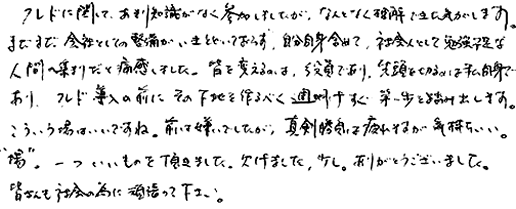 クレドに関して、あまり知識がなく参加しましたが、なんとなく理解できた気がします。
まだまだ会社としての整備がいきとどいておらず、自分自身含めて、社会人として勉強不足な
人間の集まりだと痛感しました。皆を変えるのは、役員であり、先頭を切るのは私自身で
あり、クレド導入の前にその下地を作るべく週明けすぐ第一歩を踏み出します。
こういう場はいいですね。前は嫌いでしたが、真剣勝負は疲れるが気持ちいい。
"場"。一ついいものを頂きました。欠けました、少し。ありがとうございました。
皆さんも社会の為に頑張って下さい。